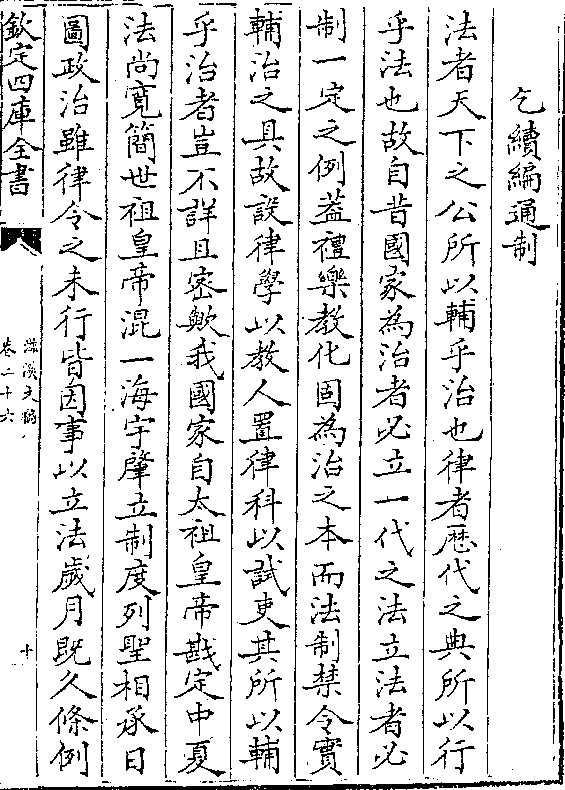 乞續編通制
法者天下之公所以輔乎治也律者歴代之典所以行
乎法也故自昔國家為治者必立一代之法立法者必
制一定之例葢禮樂教化固為治之本而法制禁令實
輔治之具故設律學以教人置律科以試吏其所以輔
乎治者豈不詳且密歟我國家自太祖皇帝戡定中夏
法尚寛簡世祖皇帝混一海宇肇立制度列聖相承日
圖政治雖律令之未行皆因事以立法歲月既久條例
欽定四庫全書
滋溪文稿
卷二十六
十